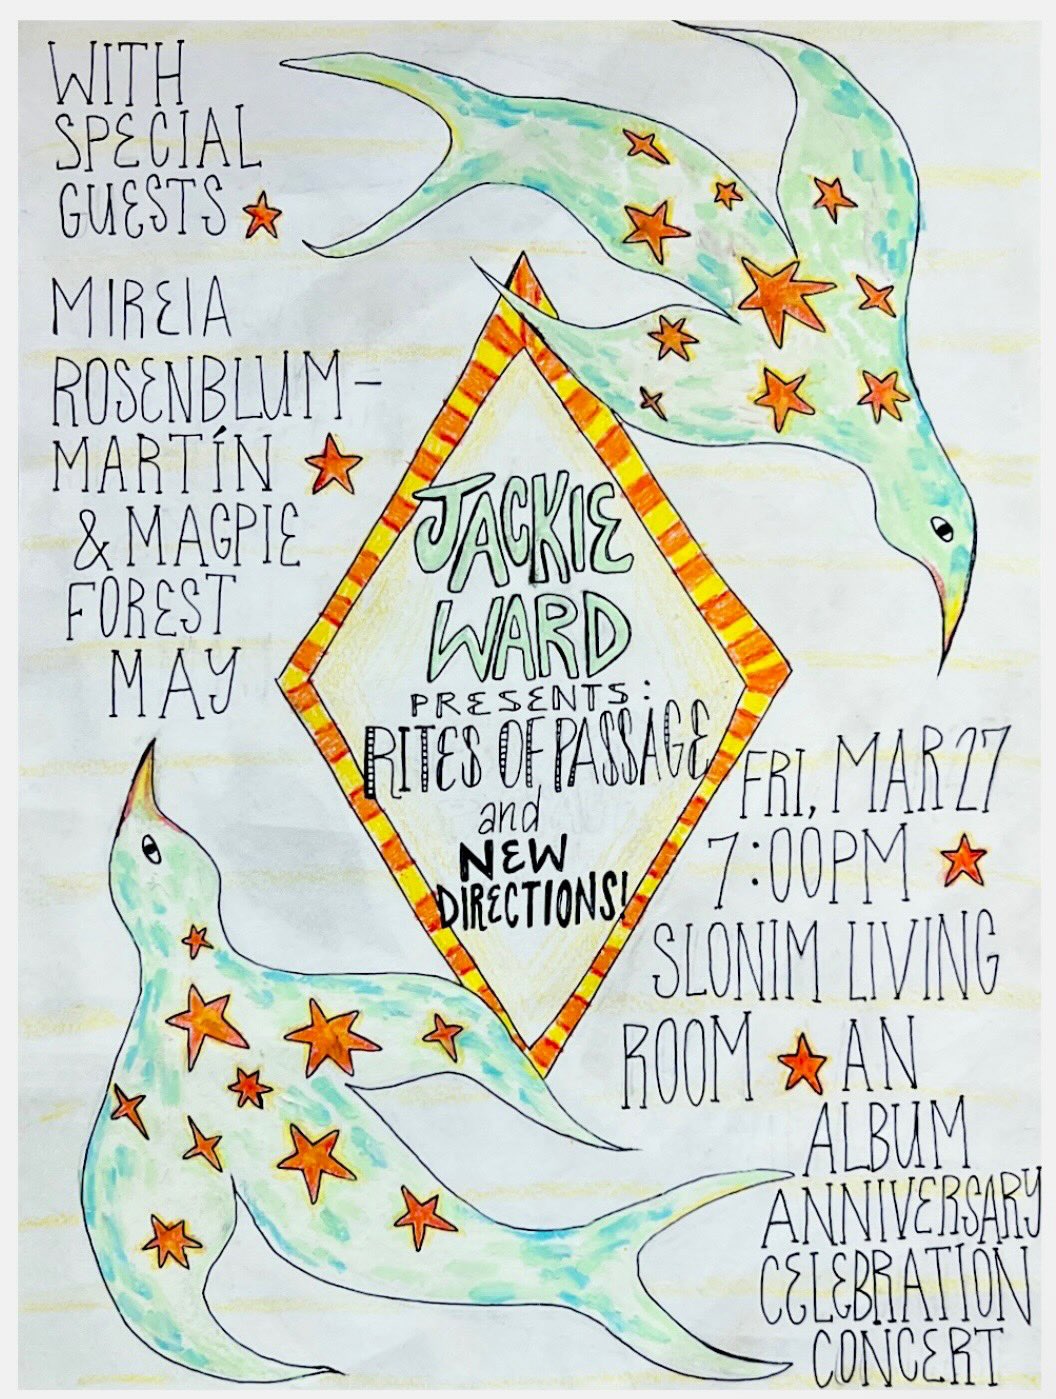 WITH
SPECIAL
GUESTS
MIREIA
ROSENBLUM-
MARTÍN
& MAGPIE
FOREST
MAY
JACKIE
WARD
PRESENTS:
RITES OF PASSAGE
and
NEW
DIRECTIONS!
FRI, MAR 27
7:00PM
SLONIM LIVING
ROOM AN
ALBUM
ANNIVERSARY
CELEBRATION
CONCERT